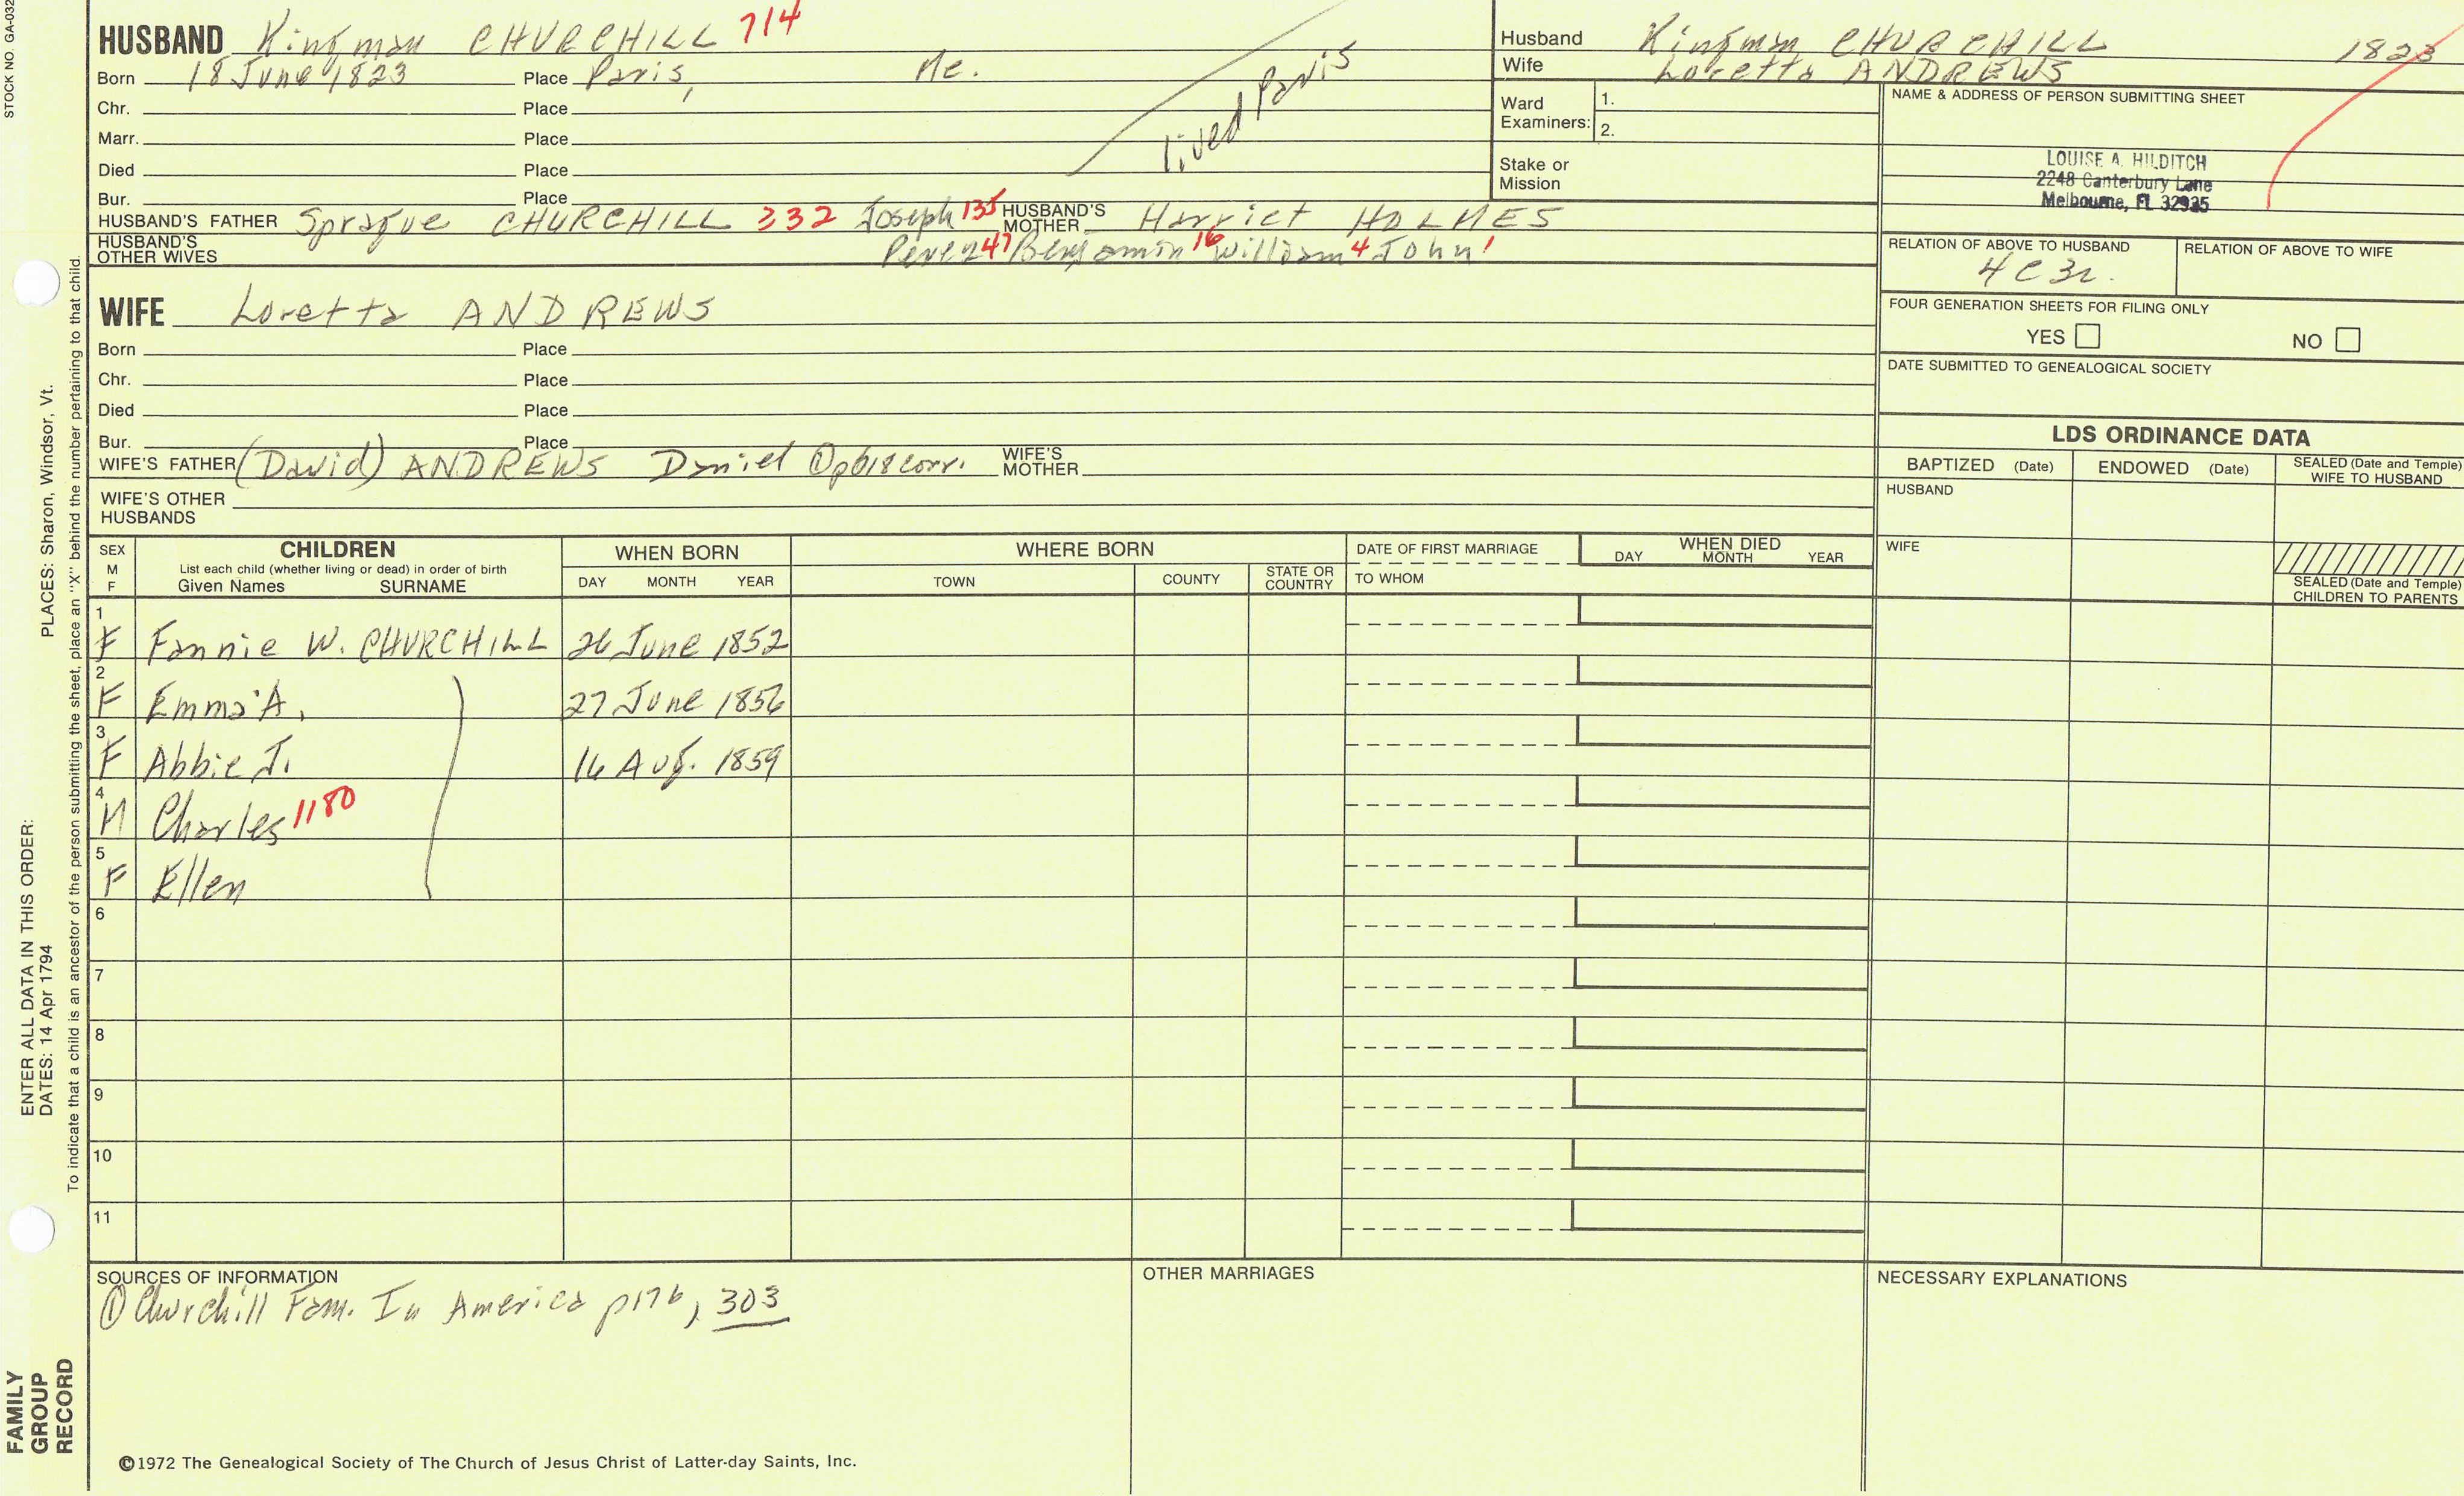 STOCK NO. GA-032
HUSBAND Kingman CHURCHILL 714
Born 18 June 1823 Place Paris, Me.
Chr. Place
Marr. Place
Died Place
Bur. Place
lived Paris
HUSBAND'S FATHER Sprague CHURCHILL 332 Joseph 135 HUSBAND'S MOTHER Harriet HOLMES
HUSBAND'S OTHER WIVES Perez 47 Benjamin 16 William 4 John 1
Husband Kingman CHURCHILL 1823
Wife Loretta ANDREWS
Ward Examiners: 1.
2.
Stake or Mission
NAME & ADDRESS OF PERSON SUBMITTING SHEET
LOUISE A. HILDITCH
2248 Canterbury Lane
Melbourne, FL 32935
RELATION OF ABOVE TO HUSBAND RELATION OF ABOVE TO WIFE
4C3r.
FOUR GENERATION SHEETS FOR FILING ONLY
YES NO
DATE SUBMITTED TO GENEALOGICAL SOCIETY
WIFE Loretta ANDREWS
Born Place
Chr. Place
Died Place
Bur. Place
WIFE'S FATHER (David) ANDREWS Daniel ① p618 corr. WIFE'S MOTHER
WIFE'S OTHER HUSBANDS
LDS ORDINANCE DATA
BAPTIZED (Date) ENDOWED (Date) SEALED (Date and Temple) WIFE TO HUSBAND
HUSBAND
WIFE
SEALED (Date and Temple) CHILDREN TO PARENTS
SEX M F
CHILDREN
List each child (whether living or dead) in order of birth
Given Names SURNAME
WHEN BORN
DAY MONTH YEAR
WHERE BORN
TOWN COUNTY STATE OR COUNTRY
DATE OF FIRST MARRIAGE
TO WHOM
WHEN DIED
DAY MONTH YEAR
1 F Fannie W. CHURCHILL 26 June 1852
2 F Emma A. 27 June 1856
3 F Abbie J. 16 Aug. 1859
4 M Charles 1180
5 F Ellen
6
7
8
9
10
11
SOURCES OF INFORMATION
① Churchill Fam. In America p176, 303
OTHER MARRIAGES
NECESSARY EXPLANATIONS
©1972 The Genealogical Society of The Church of Jesus Christ of Latter-day Saints, Inc.
FAMILY GROUP RECORD
ENTER ALL DATA IN THIS ORDER:
DATES: 14 Apr 1794 PLACES: Sharon, Windsor, Vt.
To indicate that a child is an ancestor of the person submitting the sheet, place an "X" behind the number pertaining to that child.